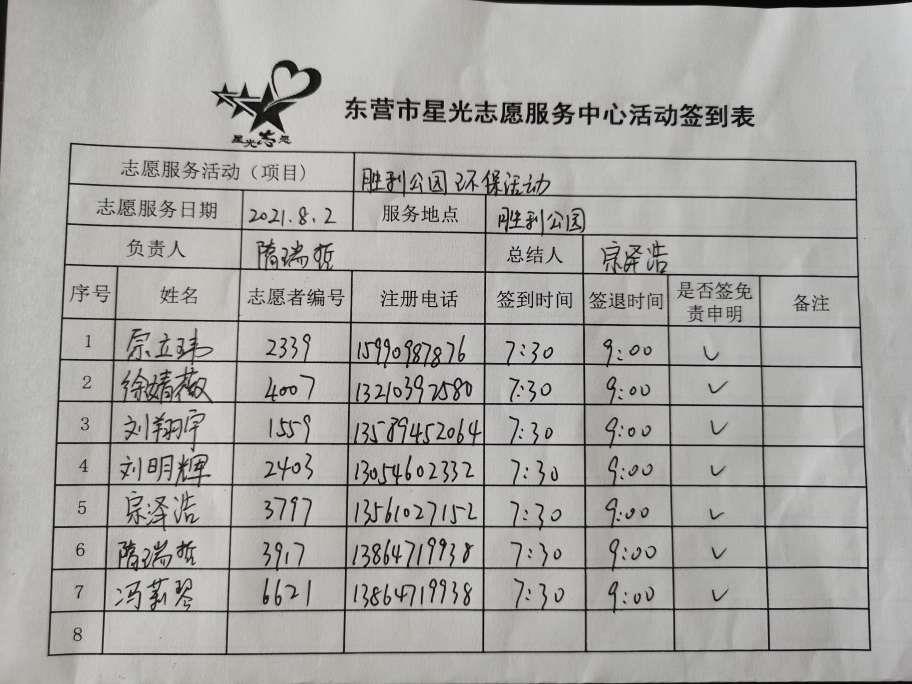 星光志愿
东营市星光志愿服务中心活动签到表
志愿服务活动（项目） 胜利公园环保活动
志愿服务日期 2021.8.2 服务地点 胜利公园
负责人 隋瑞哲 总结人 宗泽浩
序号 姓名 志愿者编号 注册电话 签到时间 签退时间 是否签免责申明 备注
1 宗立玮 2339 15990987876 7:30 9:00 ✓
2 徐婧薇 4007 13210392580 7:30 9:00 ✓
3 刘翔宇 1559 13589452064 7:30 9:00 ✓
4 刘明辉 2403 13054602332 7:30 9:00 ✓
5 宗泽浩 3797 13561027152 7:30 9:00 ✓
6 隋瑞哲 3917 13864719938 7:30 9:00 ✓
7 冯莉琴 6621 13864719938 7:30 9:00 ✓
8